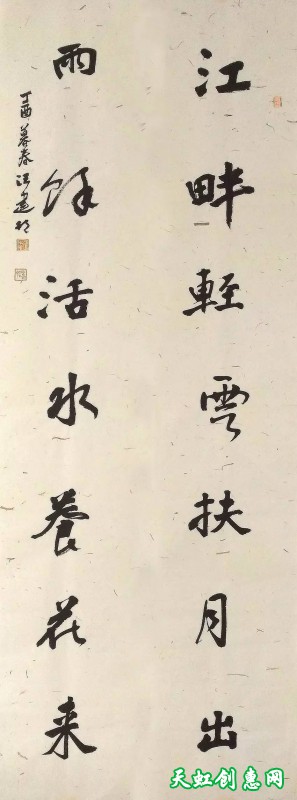 江畔輕雲扶月出
雨餘活水養花来
丁酉暮春
天虹创惠网